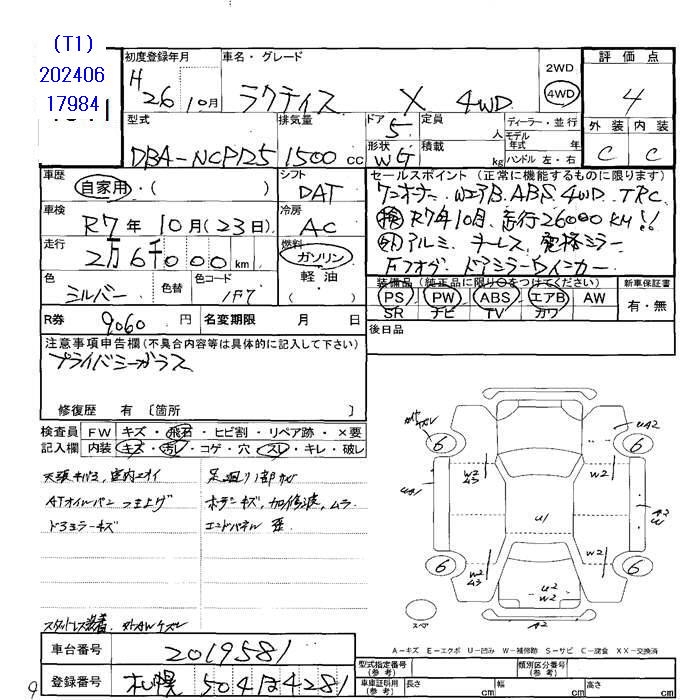 (T1)
202406
17984
初度登録年月
H
26 10月
車名・グレード
ラクティス X 4WD
2WD
4WD
評価点
4
外装 内装
C C
型式
DBA-NCP125
排気量
1500 cc
ドア 5
形状 WG
定員 人
積載 kg
ディーラー・並行
モデル年式 年
ハンドル 左・右
車歴
自家用・( )
シフト
DAT
車検
R7年 10月(23日)
冷房
AC
走行
2万6千000km
燃料
ガソリン
軽油
( )
色
シルバー
色替
色コード
1F7
セールスポイント (正常に機能するものに限ります)
ワンオーナー WエアB. ABS. 4WD TRC
検 R7年10月 走行26000KM!!
外 アルミ キーレス 電格ミラー
Fフォグ ドアミラーウインカー
装備品 (純正品に限り○をつけてください)
PS PW ABS エアB AW
SR ナビ TV カワ
新車保証書
有・無
後日品
R券 9060円
名変期限 月 日
注意事項申告欄(不具合内容等は具体的に記入して下さい)
プライバシーガラス
修復歴 有 〔箇所 〕
検査員 FW キズ・飛石・ヒビ割・リペア跡・×要
記入欄 内装 キズ・汚レ・コゲ・穴・スレ・キレ・破レ
室内ニオイ
足廻り1部サビ
ATオイルパン
ドアミラーキズ
エンドパネル 歪
スタットレス装着
6
6
6
6
UA2
UA1
W2
A3
W2
U1
A2
W
W2
A3
W2
U2
W2
A2
スペ
A-キズ E-エクボ U-凹み W-補修跡 S-サビ C-腐食 XX-交換済
車台番号 2019581
登録番号 札幌 504 ほ 4281
型式指定番号
(参考)
類別区分番号
(参考)
車庫証明用
(参考)
長さ cm
幅 cm
高さ cm